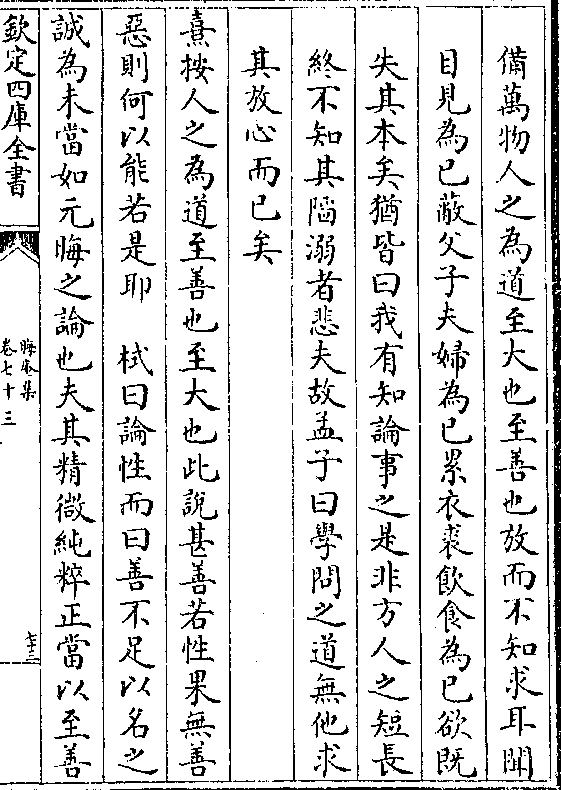 備萬物人之為道至大也至善也放而不知求耳聞
目見為已蔽父子夫婦為已累衣裘飲食為已欲既
失其本矣猶皆曰我有知論事之是非方人之短長
終不知其陷溺者悲夫故孟子曰學問之道無他求
其放心而已矣
熹按人之為道至善也至大也此說甚善若性果無善
惡則何以能若是耶 栻曰論性而曰善不足以名之
誠為未當如元晦之論也夫其精微純粹正當以至善
欽定四庫全書
晦庵集
卷七十三
七十三